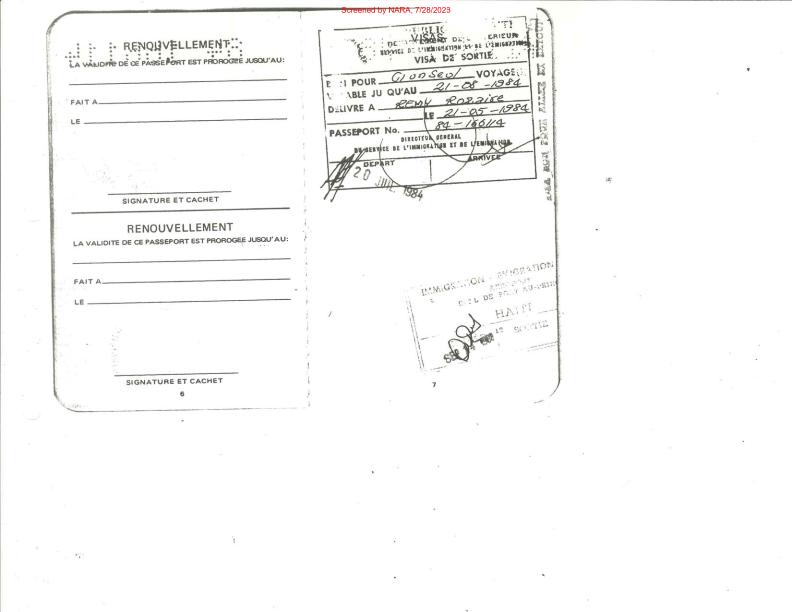 Screened by NARA, 7/28/2023
RENOUVELLEMENT
LA VALIDITE DE CE PASSEPORT EST PROROGEE JUSQU'AU:
FAIT A
LE
SIGNATURE ET CACHET
RENOUVELLEMENT
LA VALIDITE DE CE PASSEPORT EST PROROGEE JUSQU'AU:
FAIT A
LE
SIGNATURE ET CACHET
6
VISAS
SERVICE DE L'IMMIGRATION ET DE L'EMIGRATION
VISA DE SORTIE
POUR VOYAGE
JU QU'AU 21-08-1984
DELIVRE A REMY
LE 21-05-1984
PASSEPORT No. 84-166114
DIRECTEUR GENERAL
DU SERVICE DE L'IMMIGRATION ET DE L'EMIGRATION
DEPART ARRIVEE
20 JUIL 1984
IMMIGRATION - EMIGRATION
HAITI
SORTIE
7